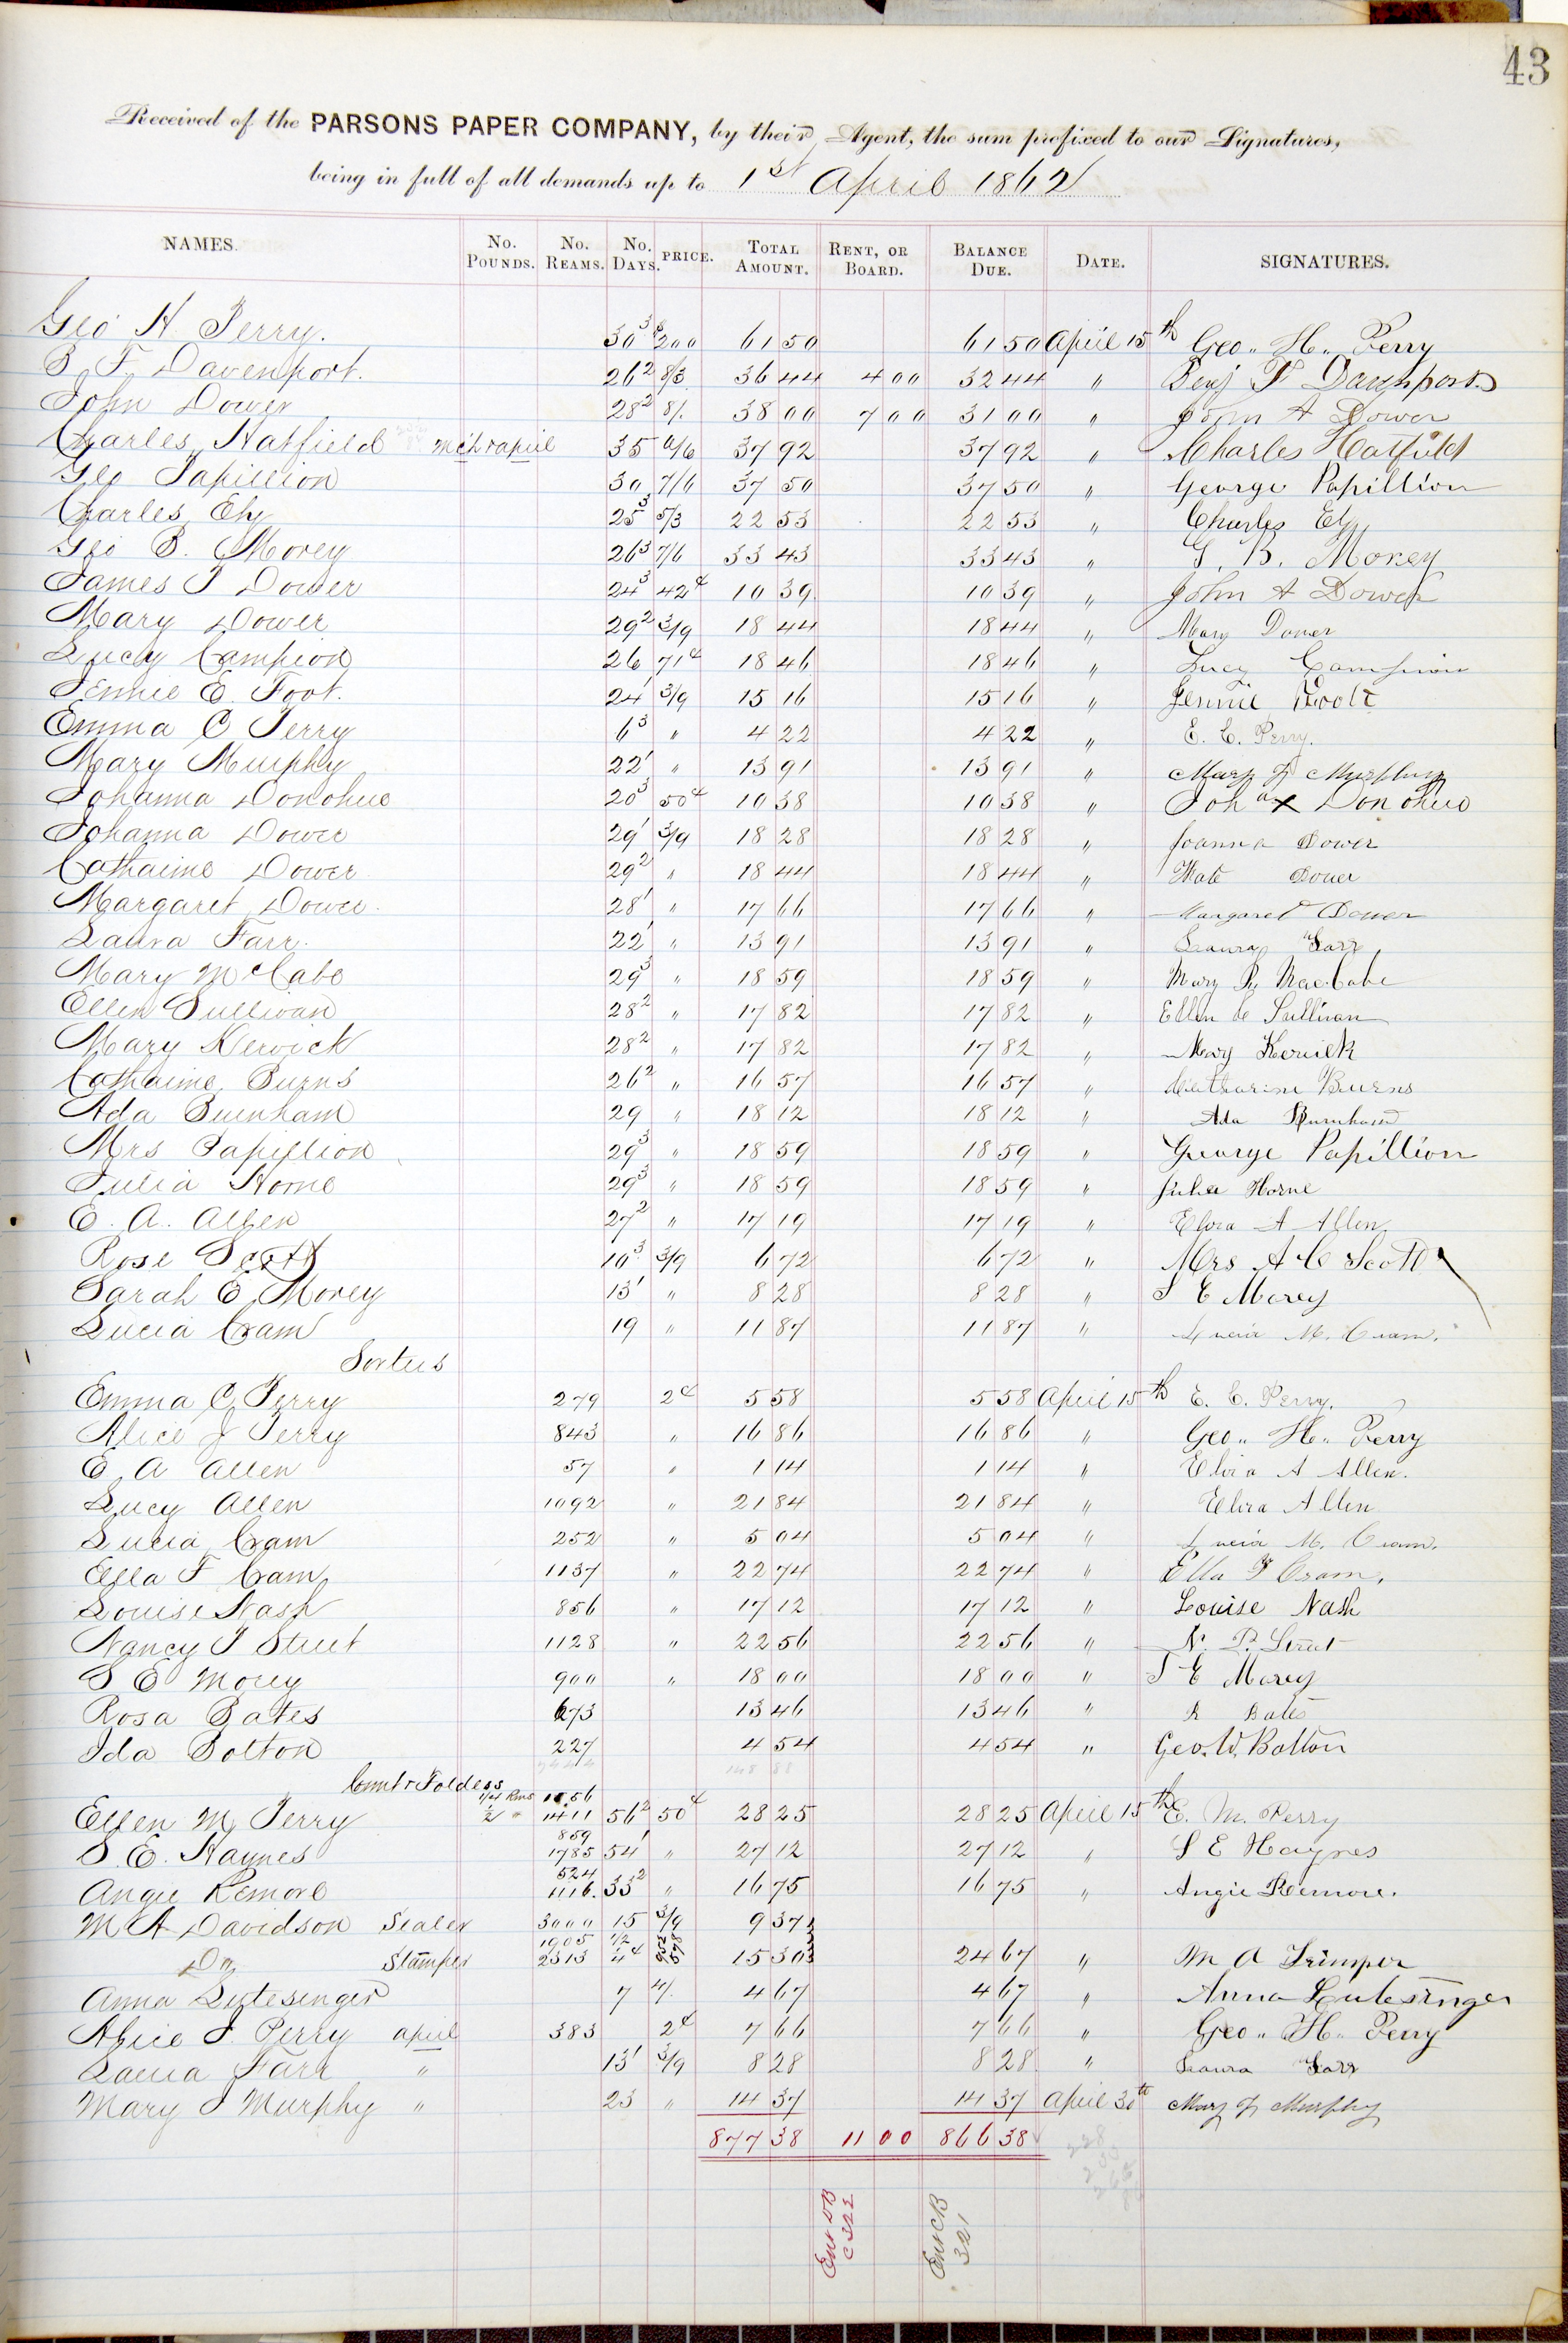 43
Received of the PARSONS PAPER COMPANY, by their Agent, the sum prefixed to our Signatures,
being in full of all demands up to 1st April 1862
NAMES. No. POUNDS. No. REAMS. No. DAYS. PRICE. TOTAL AMOUNT. RENT, OR BOARD. BALANCE DUE. DATE. SIGNATURES.
Geo H Perry. 30 3 200 61 50 61 50 April 15th Geo. H. Perry
B. F. Davenport. 26 2 8/3 36 44 4 00 32 44 " Benj F Davenport
John Dower 28 2 8/. 38 00 7 00 31 00 " John A Dower
Charles Hatfield Mch & April 35 37 92 37 92 " Charles Hatfield
Geo Papillion 30 7/6 37 50 37 50 " George Papillion
Charles Ely 25 3 5/3 22 53 22 53 " Charles Ely
Geo B. Morey 26 3 7/6 33 43 33 43 " G. B. Morey
James P Dower 24 3 42¢ 10 39 10 39 " John A Dower
Mary Dower 29 2 3/9 18 44 18 44 " Mary Dower
Lucy Campion 26 71¢ 18 46 18 46 " Lucy Campion
Jennie E Foot. 24 1 3/9 15 16 15 16 " Jennie Foote
Emma C Perry 6 3 " 4 22 4 22 " E. C. Perry.
Mary Murphy 22 1 " 13 91 13 91 " Mary J Murphy
Johanna Donohue 20 3 50¢ 10 38 10 38 " Joh a x Donohue
Johanna Dower 29 1 3/9 18 28 18 28 " Joanna Dower
Cathaine Dower 29 2 " 18 44 18 44 " Kate Dower
Margaret Dower 28 1 " 17 66 17 66 " Margaret Dower
Laura Farr. 22 1 " 13 91 13 91 " Laura Farr
Mary McCabe 29 3 " 18 59 18 59 " Mary MacCabe
Ellen Sullivan 28 2 " 17 82 17 82 " Ellen Sullivan
Mary Kerwick 28 2 " 17 82 17 82 " Mary Kerwick
Cathaine Burns 26 2 " 16 57 16 57 " Catharine Burns
Ada Burnham 29 " 18 12 18 12 " Ada Burnham
Mrs Papillion 29 3 " 18 59 18 59 " George Papillion
Julia Horne 29 3 " 18 59 18 59 " Julia Horne
E. A. Allen 27 2 " 17 19 17 19 " Elvira A Allen
Rose Scott 10 3 3/9 6 72 6 72 " Mrs A C Scott
Sarah E Morey 13 1 " 8 28 8 28 " S E Morey
Lucia Cram 19 " 11 87 11 87 " Lucia M. Cram.
Sorters
Emma C Perry 279 2¢ 5 58 5 58 April 15th E. C. Perry.
Alice J Perry 843 " 16 86 16 86 " Geo. H. Perry
E. A Allen 57 " 1 14 1 14 " Elvira A Allen.
Lucy Allen 1092 " 21 84 21 84 " Elvira Allen
Lucia Cram 252 " 5 04 5 04 " Lucia M. Cram.
Ella F Cram 1137 " 22 74 22 74 " Ella F Cram.
Louise Nash 856 " 17 12 17 12 " Louise Nash
Nancy P Street 1128 " 22 56 22 56 " N. P. Street
S E Morey 900 " 18 00 18 00 " S E Morey
Rosa Bates 673 13 46 13 46 " R Bates
Ida Bolton 227 4 54 4 54 " Geo. W. Bolton
Count & Folders 1/4 Rms 1056
Ellen M Perry 1/2 " 1411 56 2 50¢ 28 25 28 25 April 15th E. M. Perry
859
S. E. Haynes 1785 54 1 " 27 12 27 12 " S E Haynes
524
Angie Remore 1116. 33 2 " 16 75 16 75 " Angie Remore.
M A Davidson Sealer 3000 15 3/9 9 37
1905 1/2
Do Stamper 2313 4¢ 15 30 24 67 " M A Trimper
Anna Lutesinger 7 4/. 4 67 4 67 " Anna Lutesinger
Alice J. Perry april 383 2¢ 7 66 7 66 " Geo. H. Perry
Laura Farr " 13 1 3/9 8 28 8 28 " Laura Farr
Mary J Murphy " 23 " 14 37 14 37 April 30th Mary J Murphy
877 38 11 00 866 38
Ent DB
C 322
Ent CB
321